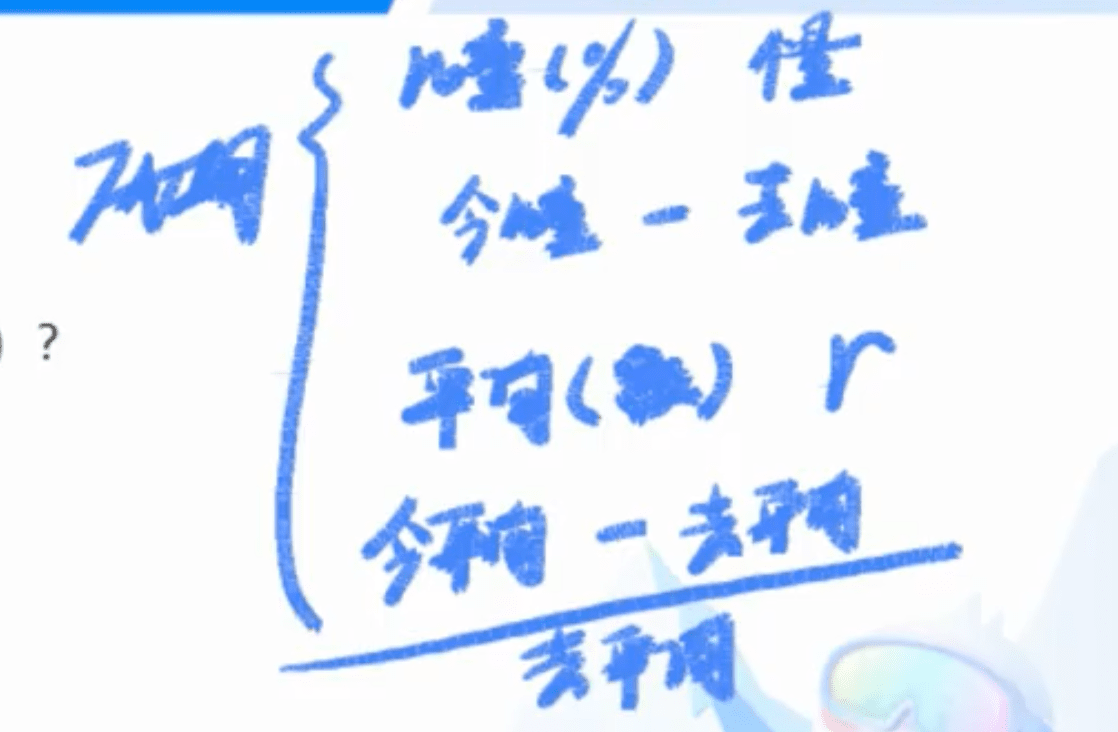 比重(%)
今比重 - 去比重
) ?
平均(数) r
今平均 - 去平均
去平均